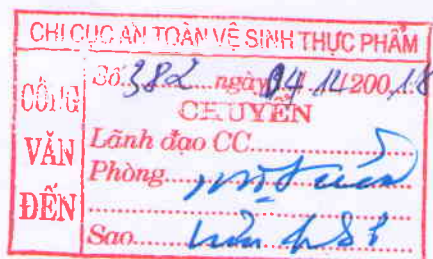 CHI CỤC AN TOÀN VỆ SINH THỰC PHẨM
CÔNG VĂN ĐẾN
Số 382 ngày 04/11/200.18
CHUYỂN
Lãnh đạo CC
Phòng
Sao